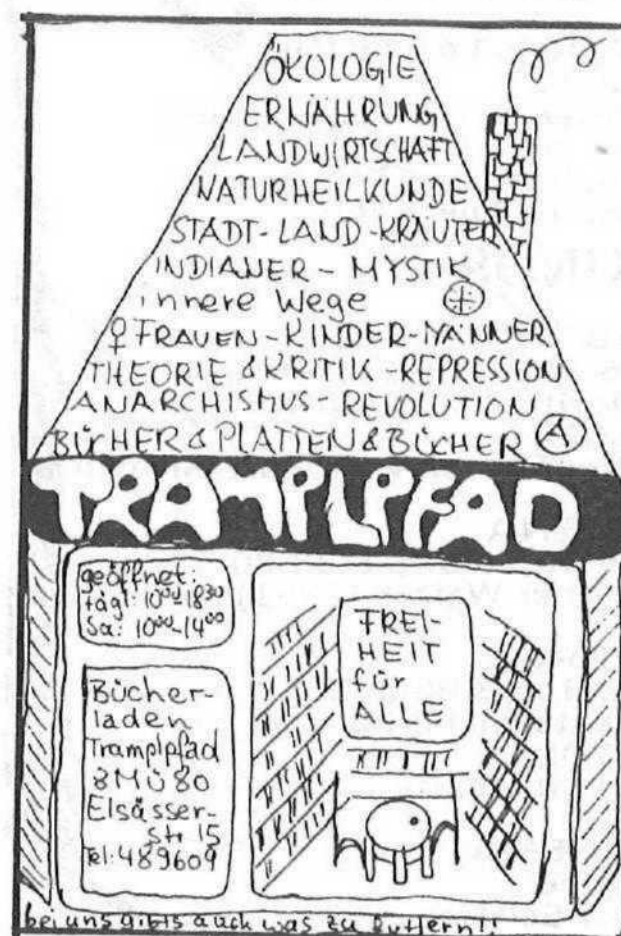 ÖKOLOGIE
ERNÄHRUNG
LANDWIRTSCHAFT
NATURHEILKUNDE
STADT-LAND-KRÄUTER
INDIANER - MYSTIK
innere Wege
♀ FRAUEN-KINDER-MÄNNER
THEORIE & KRITIK - REPRESSION
ANARCHISMUS - REVOLUTION
BÜCHER & PLATTEN & BÜCHER Ⓐ
TRAMPLPFAD
geöffnet:
tägl: 10⁰⁰-18³⁰
Sa: 10⁰⁰-14⁰⁰
Bücher-
laden
Tramplpfad
8MÜ80
Elsässer-
str 15
Tel: 489609
FREI-
HEIT
für
ALLE
bei uns gibts auch was zu futtern!!